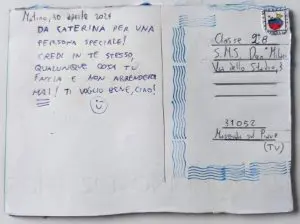 10 aprile 2021
DA CATERINA PER UNA
PERSONA SPECIALE!
CREDI IN TE STESSO,
QUALUNQUE COSA TU
FACCIA E NON ARRENDERTI
MAI! TI VOGLIO BENE, CIAO!
Classe 2ª B
S.M.S. Don Milani
Via dello Stadio, 3
31052
Maserada sul Piave
(TV)